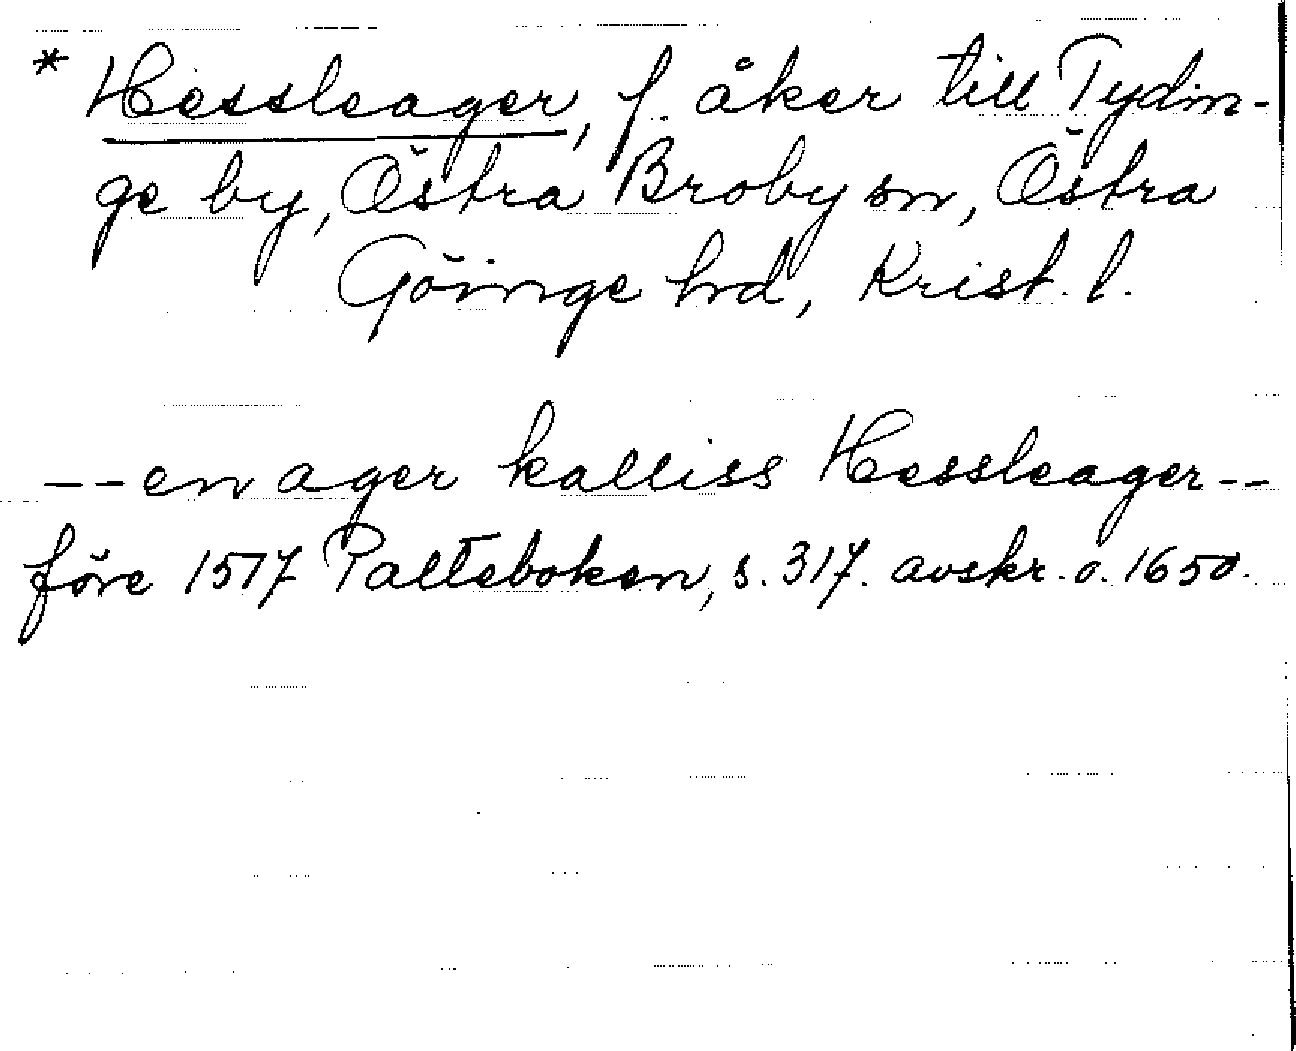 * Hessleager, f. åker till Tydin-
ge by, Östra Broby sn, Östra
Göinge hd, Krist. l.
-- en ager kalliss Hessleager --
före 1517 Palteboken, s. 317. avskr. o. 1650.